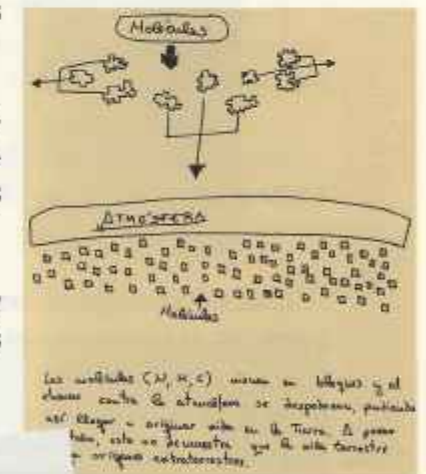 Moléculas
ATMÓSFERA
Moléculas
Las moléculas (N, H, C) vienen en bloques y al
chocar contra la atmósfera se desperdician, pudiendo
así llegar a originar vida en la Tierra. A pesar
esto no demuestra que la vida terrestre
origen extraterrestre.